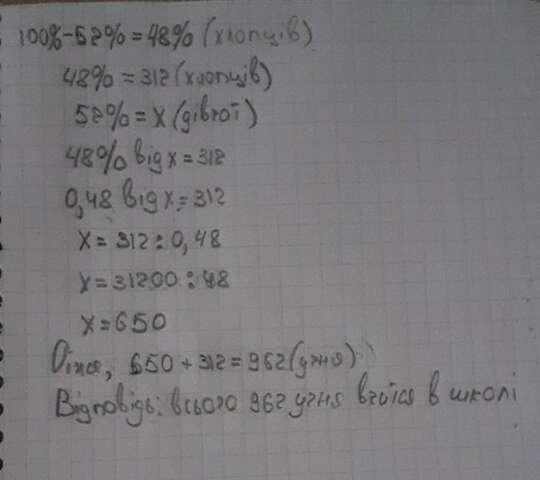 100%-52%=48% (хлопців)
48%=312 (хлопців)
52%=x (дівчат)
48% від x=312
0,48 від x=312
x=312:0,48
x=31200:48
x=650
Отже, 650+312=962 (учня)
Відповідь: всього 962 учня вчится в школі